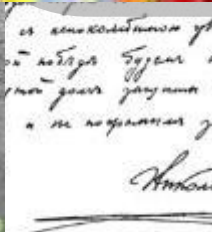 съ непоколѣбимою ув
ой победы будемъ
долгъ защиты
и не посрамимъ з
Никол